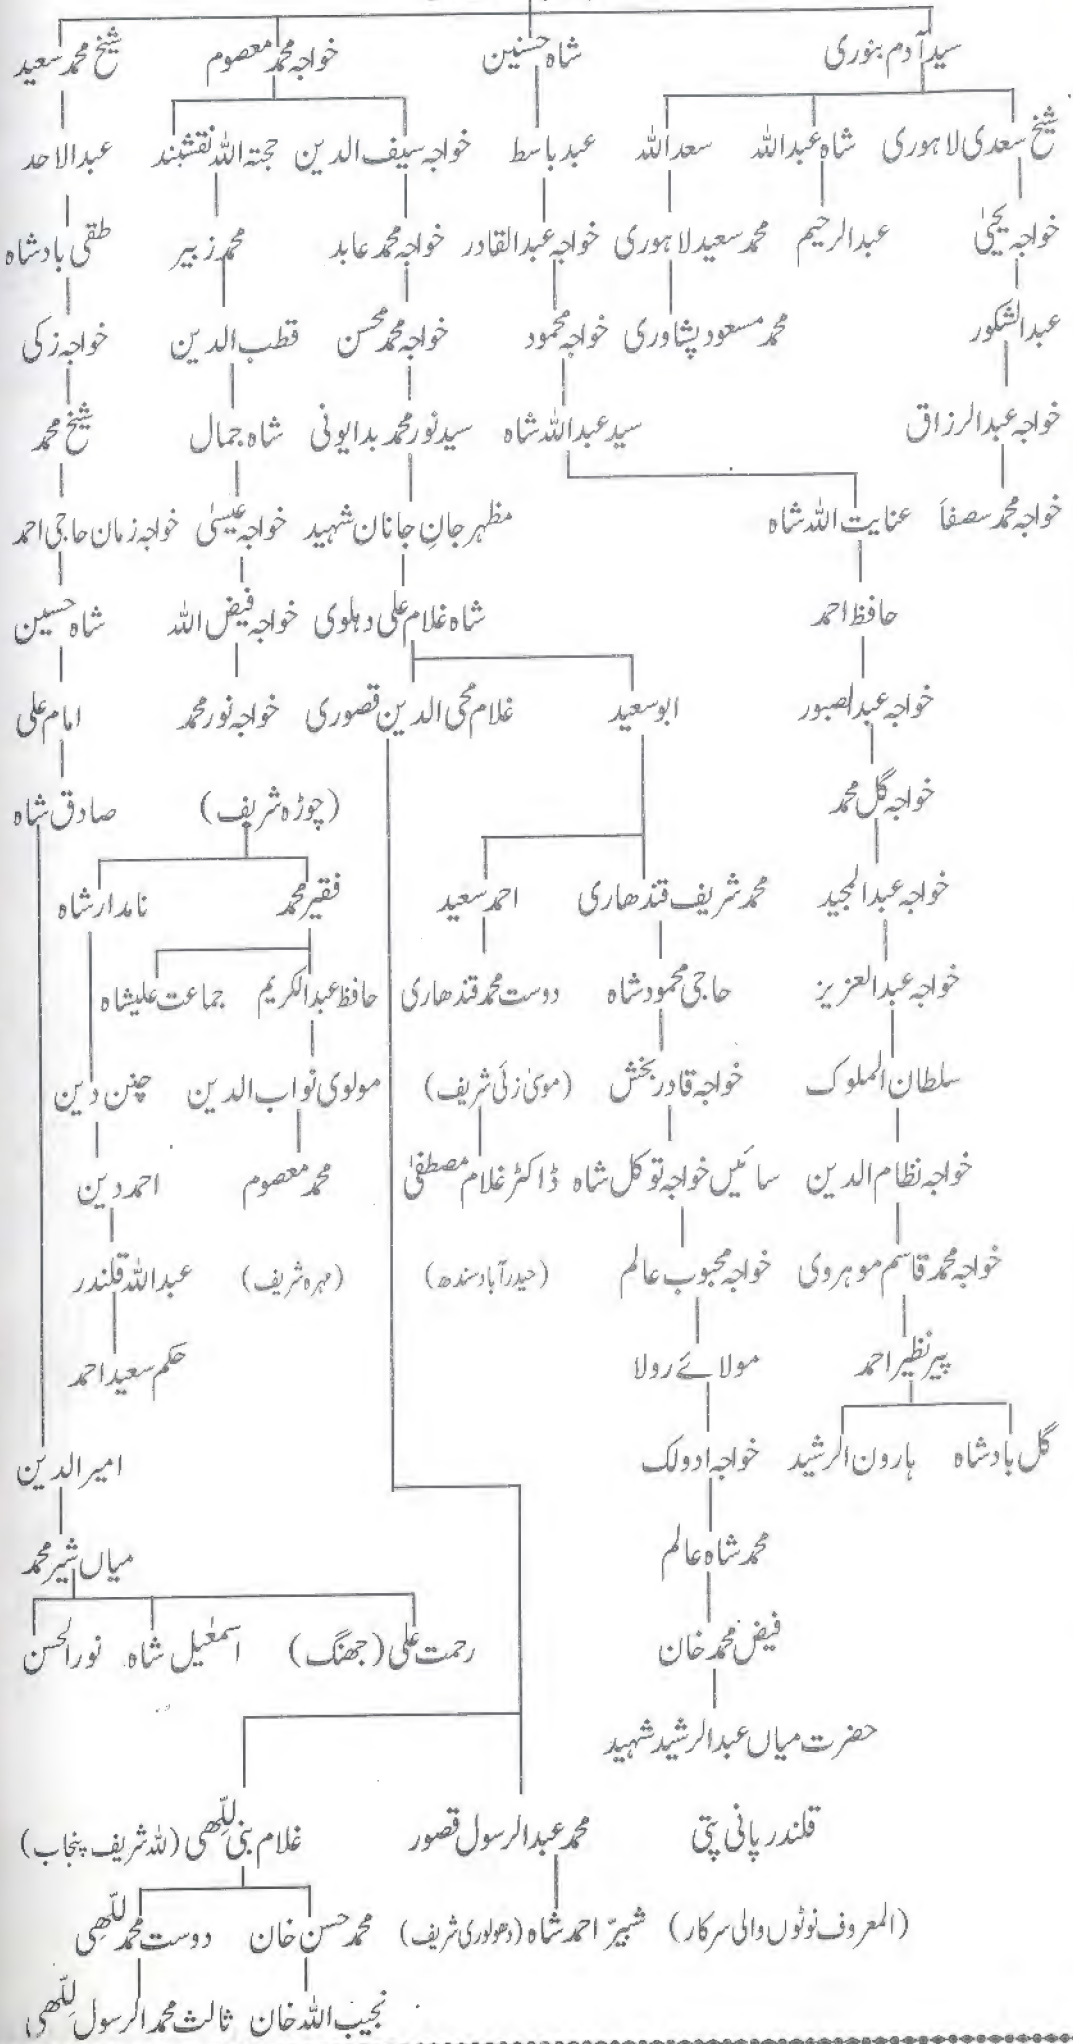 سید آدم بنوری شاہ حسنین خواجہ محمد معصوم شیخ محمد سعید
شیخ سعدی لاہوری شاہ عبداللہ سعد اللہ عبد باسط خواجہ سیف الدین حجتہ اللہ نقشبند عبدالاحد
خواجہ یحیٰی عبدالرحیم محمد سعید لاہوری خواجہ عبدالقادر خواجہ محمد عابد محمد زبیر طقی بادشاہ
عبدالشکور محمد مسعود پشاوری خواجہ محمود خواجہ محمد محسن قطب الدین خواجہ زکی
خواجہ عبدالرزاق سید عبداللہ شاہ سید نور محمد بدایونی شاہ جمال شیخ محمد
خواجہ محمد سصفاَ عنایت اللہ شاہ مظہر جانِ جانان شہید خواجہ عیسٰی خواجہ زمان حاجی احمد
حافظ احمد شاہ غلام علی دہلوی خواجہ فیض اللہ شاہ حسین
خواجہ عبدلصبور ابو سعید غلام محی الدین قصوری خواجہ نور محمد امام علی
خواجہ گل محمد (چوڑہ شریف) صادق شاہ
خواجہ عبدالمجید محمد شریف قندھاری احمد سعید فقیر محمد نامدار شاہ
خواجہ عبدالعزیز حاجی محمود شاہ دوست محمد قندھاری حافظ عبدالکریم جماعت علیشاہ
سلطان الملوک خواجہ قادر بخش (موسٰی زئی شریف) مولوی نواب الدین چنن دین
خواجہ نظام الدین سائیں خواجہ توکل شاہ ڈاکٹر غلام مصطفٰی محمد معصوم احمد دین
خواجہ محمد قاسم موہروی خواجہ محبوب عالم (حیدر آباد سندھ) (مہرہ شریف) عبداللہ قلندر
پیر نظیر احمد مولائے رولا حکم سعید احمد
گل بادشاہ ہارون الرشید خواجہ ادولک امیر الدین
محمد شاہ عالم میاں شیر محمد
فیض محمد خان رحمت علی (جھنگ) اسمعٰیل شاہ نور الحسن
حضرت میاں عبدالرشید شہید
قلندر پانی پتی محمد عبدالرسول قصور غلام بنی للّٰھی (للہ شریف پنجاب)
(المعروف نوٹوں والی سرکار) شبیرّ احمد شاہ (دھولوری شریف) محمد حسن خان دوست محمد للّٰھی
نجیب اللہ خان ثالث محمد الرسول للّٰھی